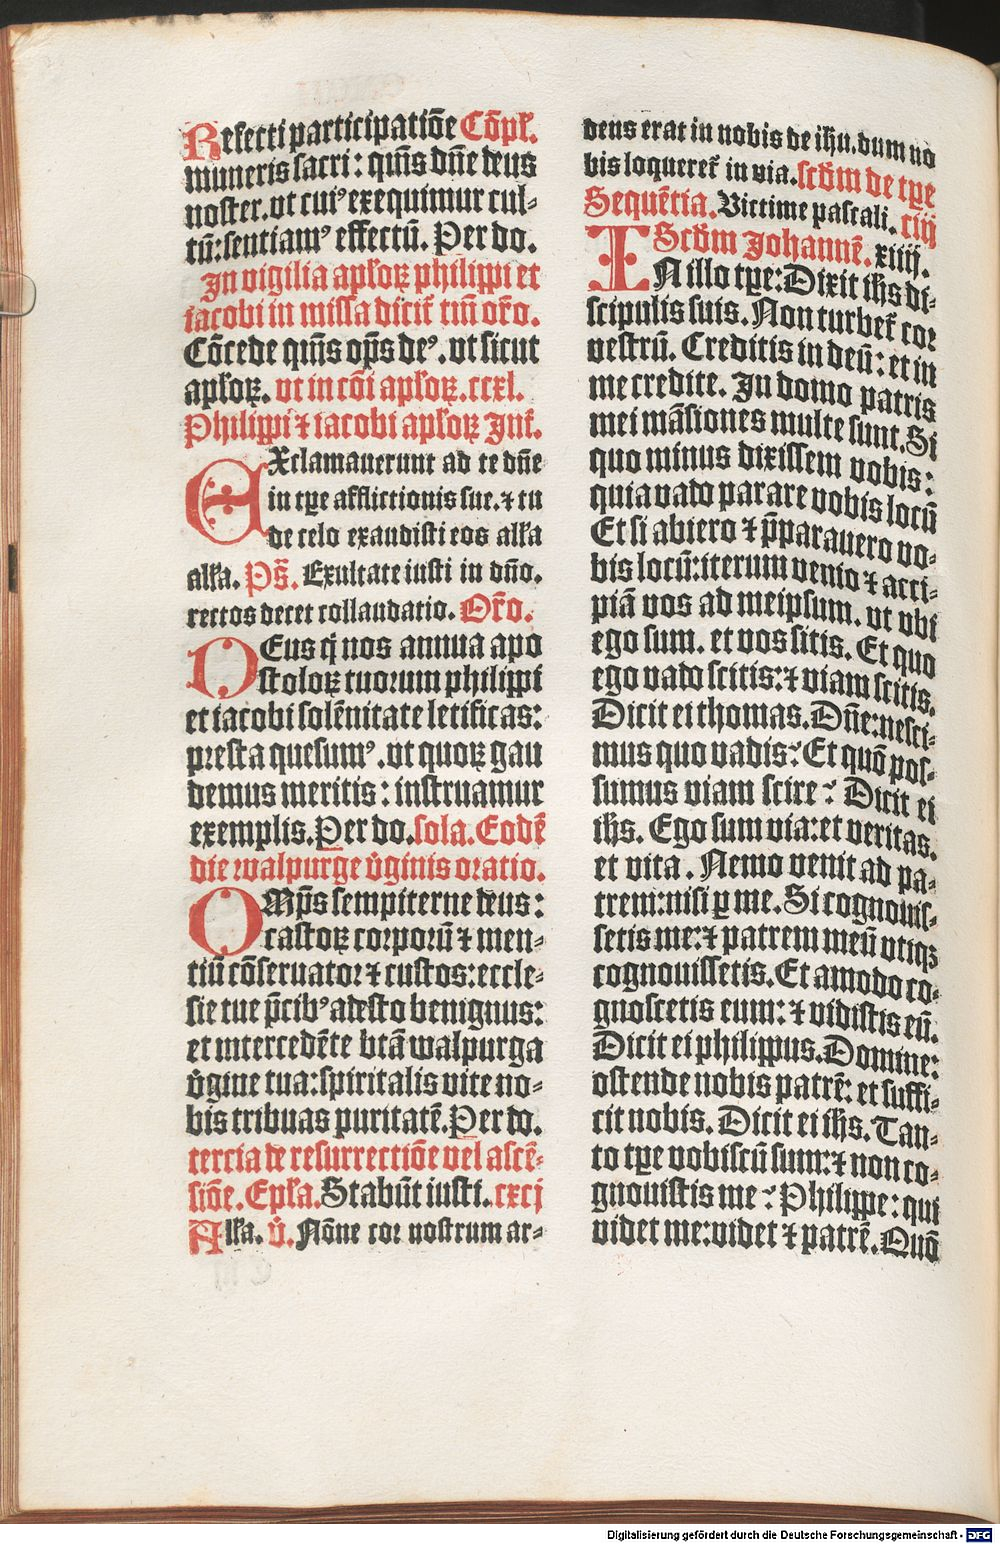 Refecti participatiōe Cōpl̄.
muneris sacri: qm̄s dn̄e deus
noster.vt cuiꝰ exequimur cul-
tū:sentiamꝰ effectū. Per do.
In vigilia apl̄oꝝ philippi et
iacobi in missa dicit̄ tm̄ or̄o.
Cōcede qm̄s op̄s deꝰ.vt sicut
apl̄oꝝ. vt in cōi apl̄oꝝ.ccxl.
Philippi ⁊ iacobi apl̄oꝝ Int̄.
EXclamauerunt ad te dn̄e
in tꝑe afflictionis sue.⁊ tu
de celo exaudisti eos all'a
all'a. Ps̄. Exultate iusti in dn̄o.
rectos decet collaudatio. Or̄o.
DEus q̄ nos annua apo
stoloꝝ tuorum philippi
et iacobi solēnitate letificas:
presta quesumꝰ.vt quoꝝ gau
demus meritis: instruamur
exemplis. Per do. sola. Eodē
die walpurge v̄ginis oratio.
OMp̄s sempiterne deus:
castoꝝ corporū ⁊ men-
tiū cōseruator ⁊ custos:eccle-
sie tue p̄cibꝰ adesto benignus:
et intercedēte btā walpurga
v̄gine tua:spiritalis vite no-
bis tribuas puritatē. Per do.
tercia de resurrectiōe vel ascē-
siōe. Epl̄a. Stabūt iusti. cxcj
All'a. v̄. Nōne cor nostrum ar-
dens erat in nobis de ihu.dum no
bis loqueret̄ in via. scd̄m de tꝑe
Sequētia. Victime pascali. ciij
Scd̄m Johannē. xiiij.
IN illo tꝑe: Dixit ihs di-
scipulis suis. Non turbet̄ cor
vestrū. Creditis in deū: et in
me credite. In domo patris
mei māsiones multe sunt. Si
quo minus dixissem vobis:
quia vado parare vobis locū
Et si abiero ⁊ p̄parauero vo-
bis locū:iterum venio ⁊ acci-
piā vos ad meipsum. vt vbi
ego sum. et vos sitis. Et quo
ego vado scitis:⁊ viam scitis.
Dicit ei thomas. Dn̄e:nesci-
mus quo vadis? Et quō pos-
sumus viam scire? Dicit ei
ihs. Ego sum via:et veritas.
et vita. Nemo venit ad pa-
trem:nisi ꝑ me. Si cognouis-
setis me:⁊ patrem meū vtiqꝫ
cognouissetis. Et amodo co-
gnoscetis eum: ⁊ vidistis eū.
Dicit ei philippus. Domine:
ostende nobis patrē: et suffi-
cit nobis. Dicit ei ihs. Tan-
to tꝑe vobiscū sum:⁊ non co-
gnouistis me? Philippe: qui
videt me:videt ⁊ patrē. Quō
Digitalisierung gefördert durch die Deutsche Forschungsgemeinschaft - DFG